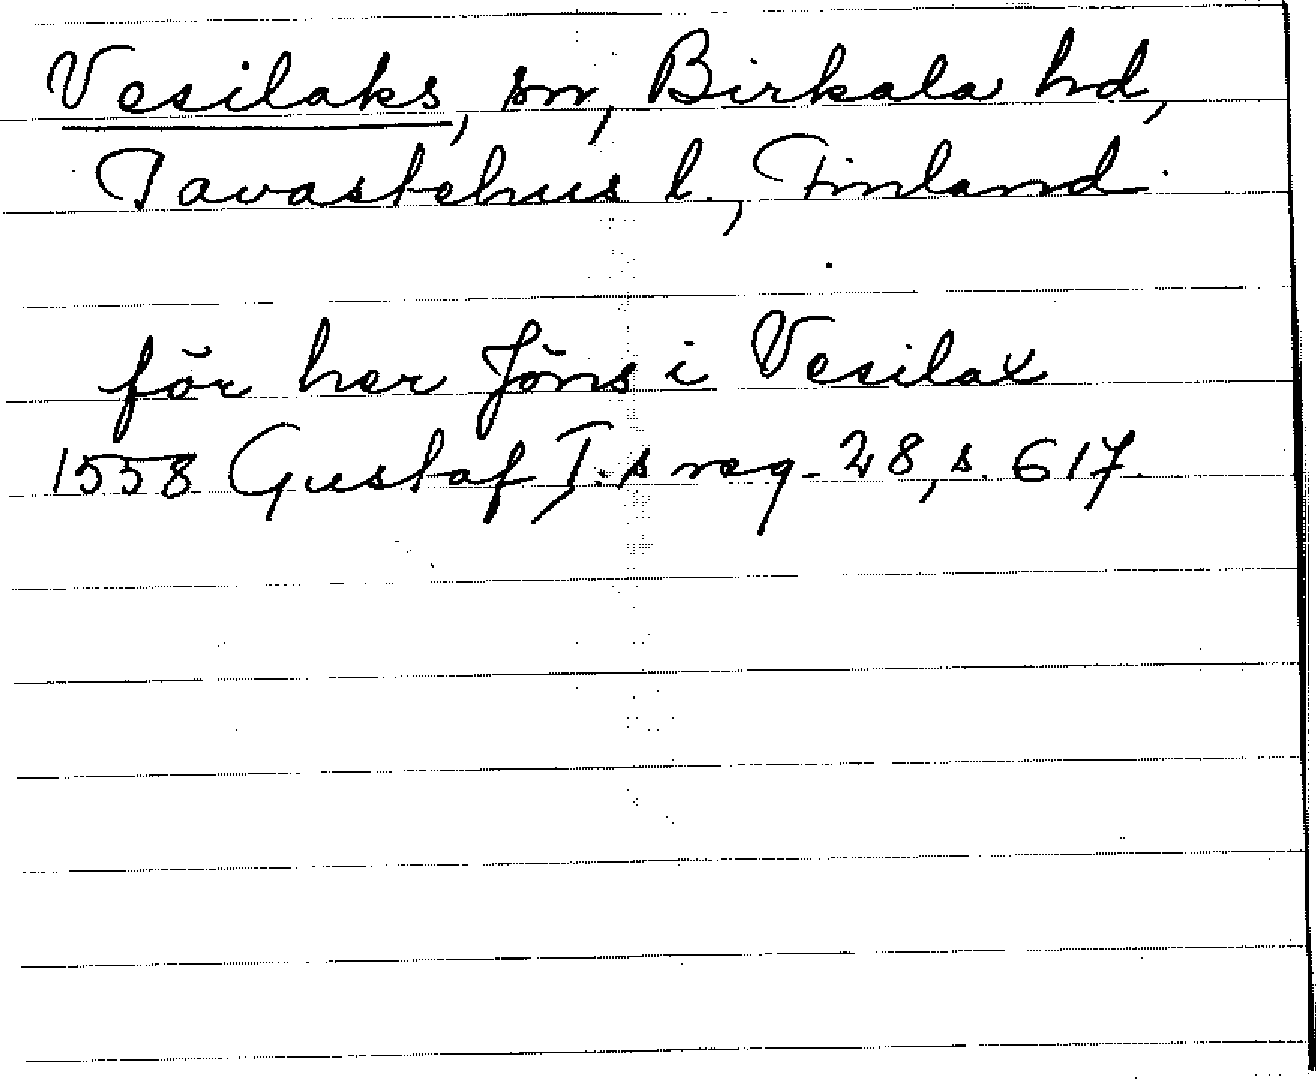 Vesilaks, sn, Birkala hd,
Tavastehus l., Finland.
för her Jöns i Vesilax
1558 Gustaf I:s reg. 28, s. 617.